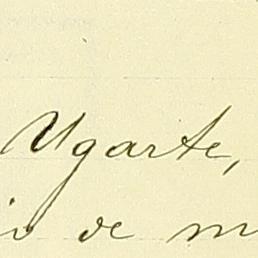 Ugarte,
io de m